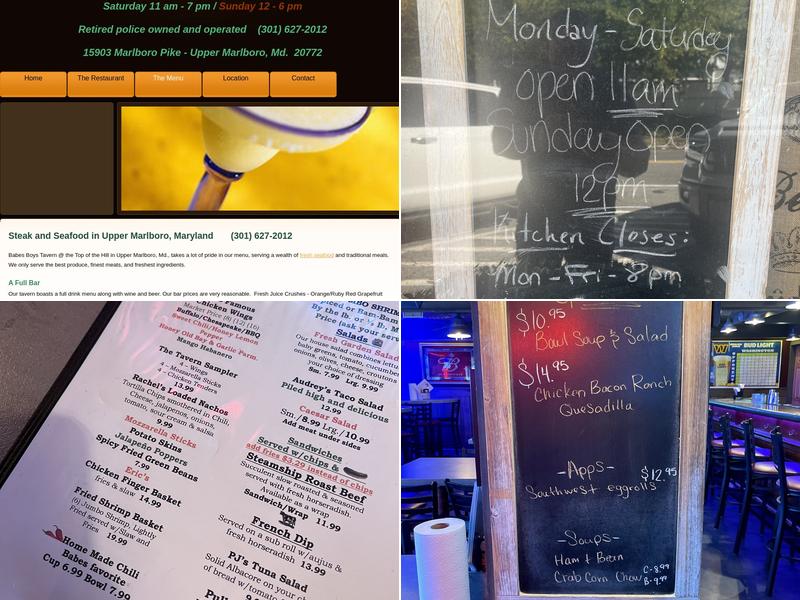 Saturday 11 am - 7 pm / Sunday 12 - 6 pm
Retired police owned and operated (301) 627-2012
15903 Marlboro Pike - Upper Marlboro, Md. 20772
Home The Restaurant The Menu Location Contact
Steak and Seafood in Upper Marlboro, Maryland (301) 627-2012
Babes Boys Tavern @ the Top of the Hill in Upper Marlboro, Md., takes a lot of pride in our menu, serving a wealth of fresh seafood and traditional meals.
We only serve the best produce, finest meats, and freshest ingredients.
A Full Bar
Our tavern boasts a full drink menu along with wine and beer. Our bar prices are very reasonable. Fresh Juice Crushes - Orange/Ruby Red Grapefruit
Monday - Saturday
open 11am
Sunday Open
12pm
Kitchen Closes:
Mon - Fri - 8pm
Famous
Chicken Wings
Market Price (6) (12) (18)
Buffalo/Chesapeake/BBQ
Sweet Chili/Honey Lemon
Pepper
Rosey Old Bay & Garlic Parm.
Mango Habanero
The Tavern Sampler
4 - Wings
4 - Mozzarella Sticks
4 - Chicken Tenders
13.99
Rachel's Loaded Nachos
Tortilla Chips smothered in Chili,
Cheese, Jalapenos, onions,
tomato, sour cream & salsa
9.99
Mozzarella Sticks
Potato Skins
Jalapeño Poppers
Spicy Fried Green Beans
7.99
Eric's
Chicken Finger Basket
fries & slaw 14.99
Fried Shrimp Basket
(6) Jumbo Shrimp, Lightly
Fried served w/Slaw and
Fries 19.99
Home Made Chili
Babes favorite
Cup 6.99 Bowl 7.99
SHRIMP
By the lb. or ½ lb.
Price (ask your
Salads
Fresh Garden Salad
Our house salad combines lettuce
baby greens, tomato, cucumber
onions, olives, cheese, croutons
your choice of dressing
Sm. 7.99 Lrg. 9.99
Audrey's Taco Salad
Piled high and delicious
12.99
Caesar Salad
Sm./8.99 Lrg./10.99
Add meat under sides
Sandwiches
Served w/chips &
add fries $3.29 instead of chips
Steamship Roast Beef
Succulent slow roasted & seasoned
served with fresh horseradish
Available as a wrap
Sandwich/Wrap 11.99
French Dip
Served on a sub roll w/aujus &
fresh horseradish 13.99
PJ's Tuna Salad
Solid Albacore on your
of bread w/tomato
$10.95
Bowl Soup & Salad
$14.95
Chicken Bacon Ranch
Quesadilla
- Apps -
Southwest eggrolls $12.95
- Soups -
Ham & Bean
Crab Corn Chow C-8.99
B-9.99
BUD LIGHT
WASHINGTON